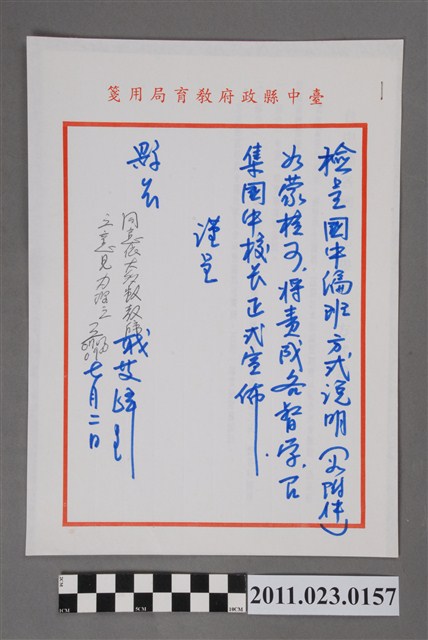 臺中縣政府教育局用箋
檢呈國中編班方式說明(如附件)
如蒙核可,將責成各督學召
集國中校长正式宣佈.
謹呈
縣长
同意依大多數教師
之意見
職
七月二日
2011.023.0157